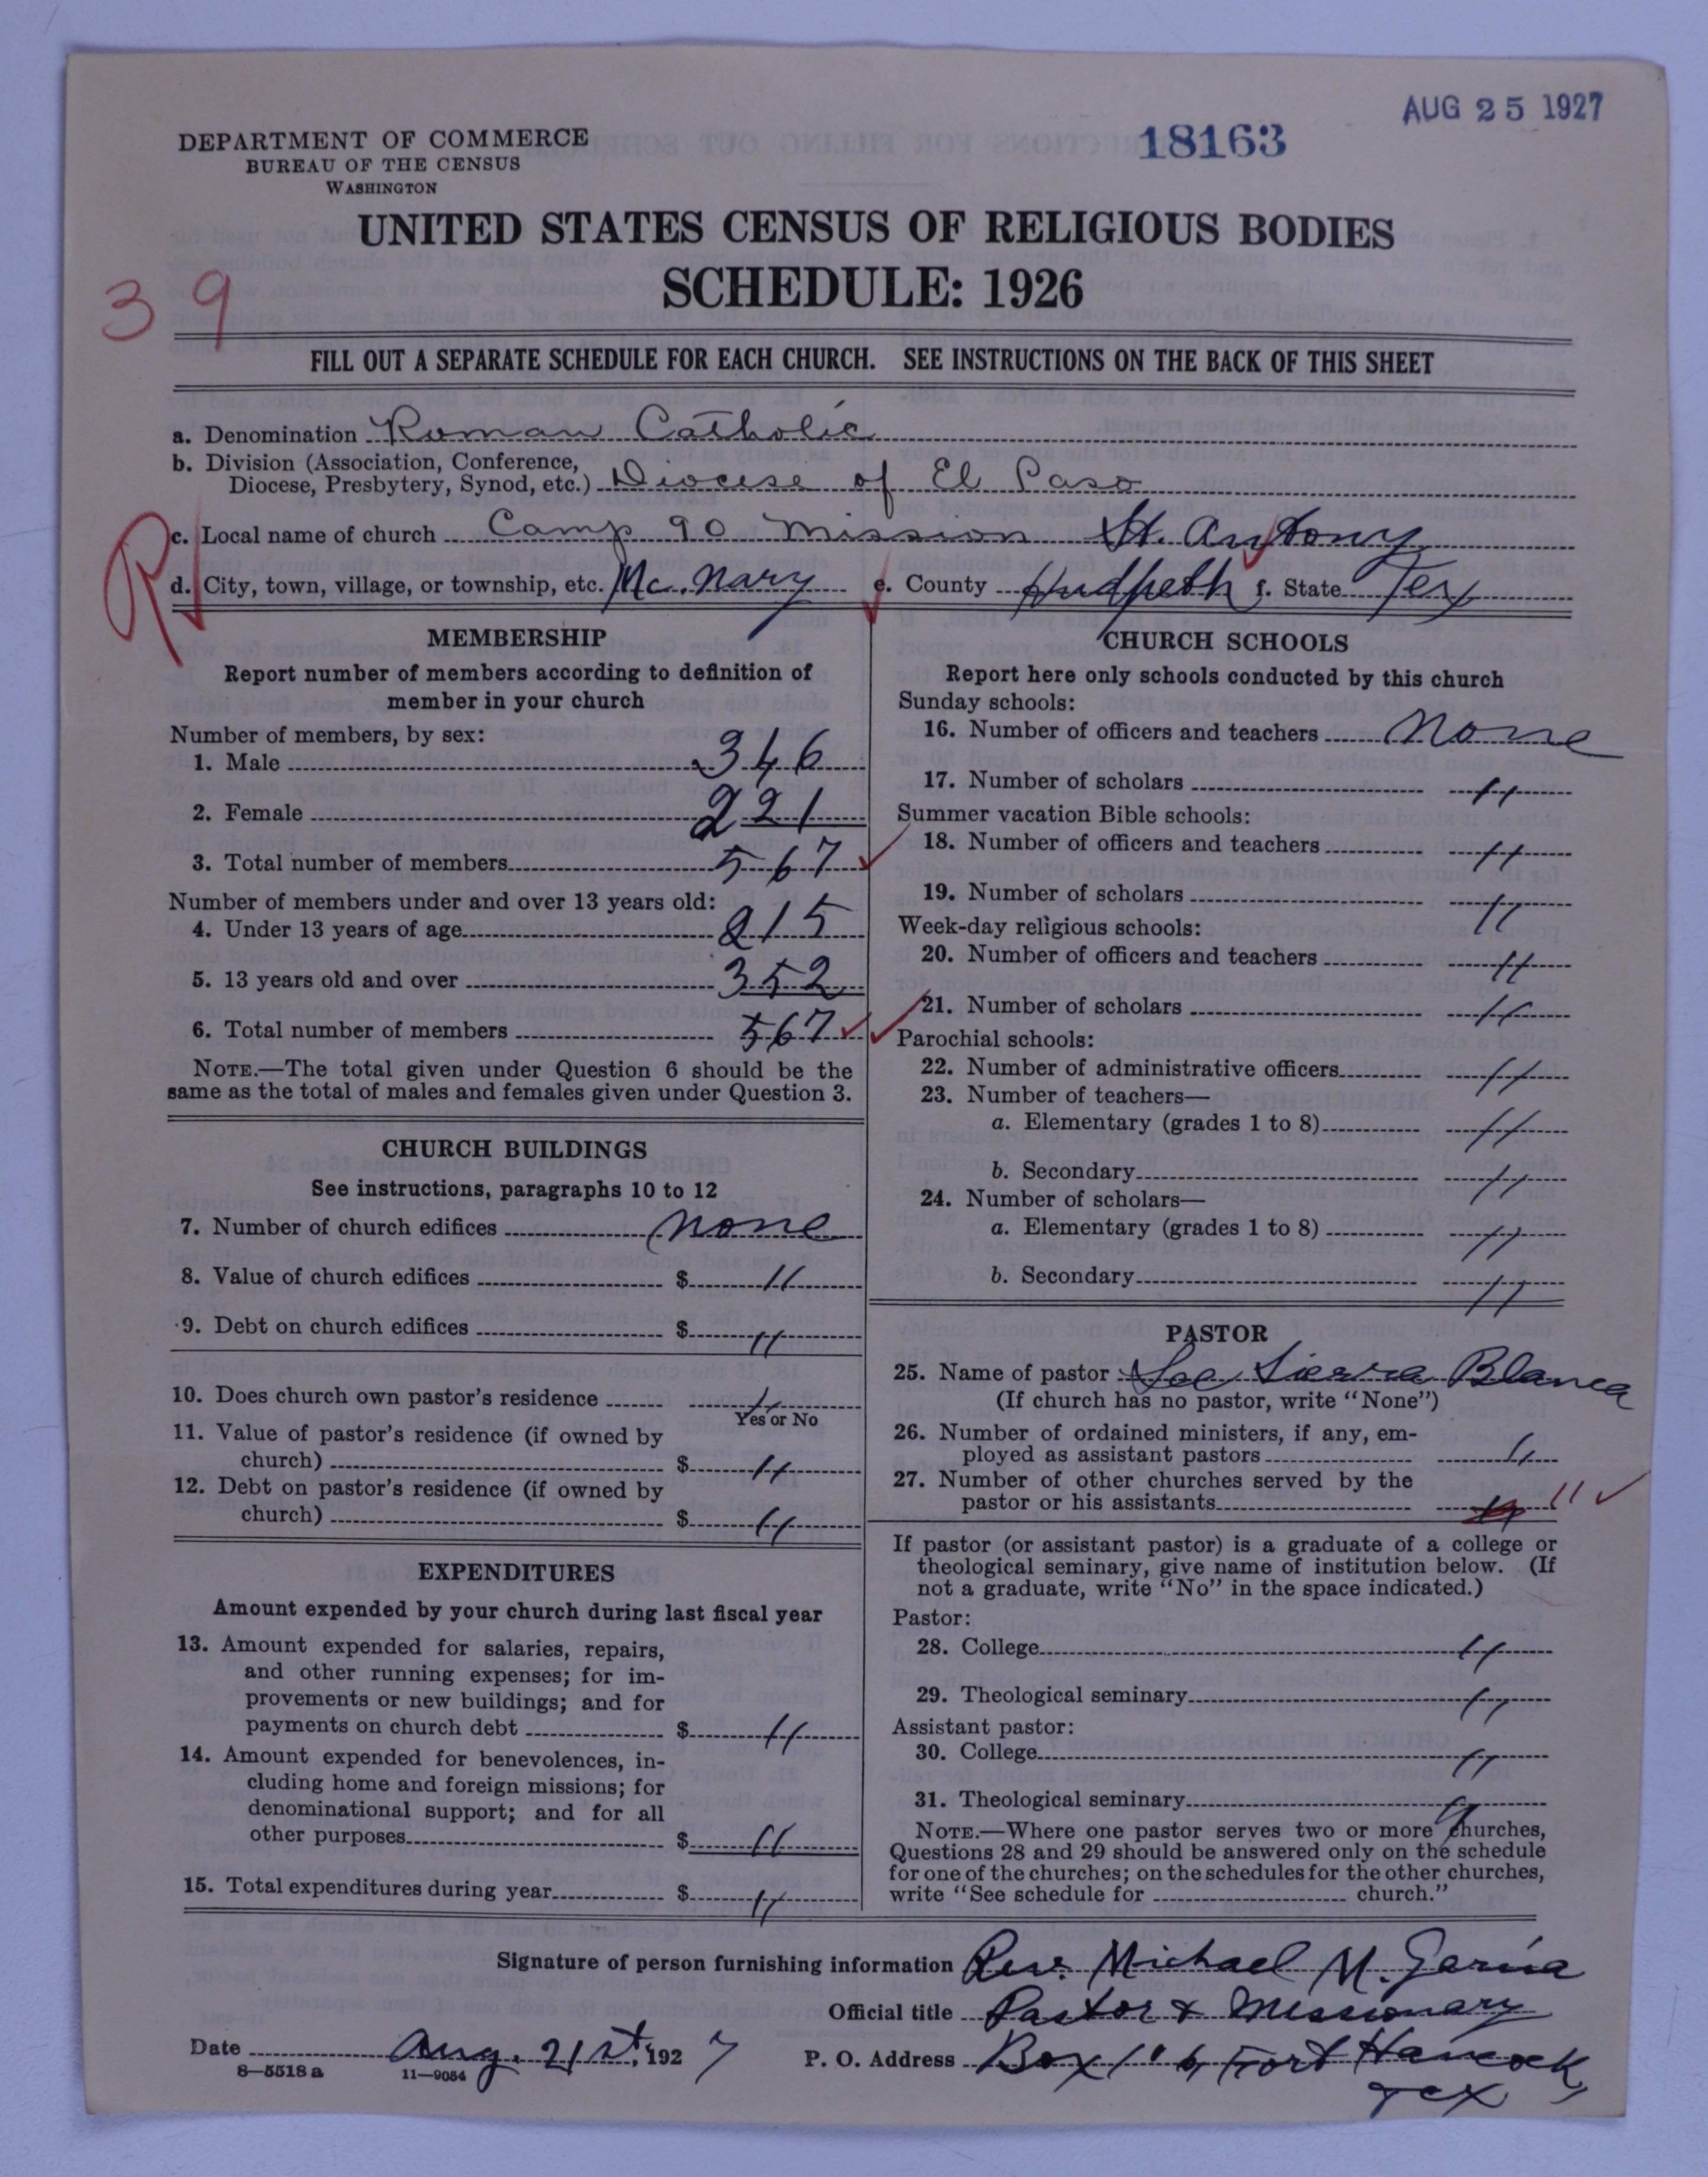 AUG 25 1927
18163
DEPARTMENT OF COMMERCE
BUREAU OF THE CENSUS
WASHINGTON
UNITED STATES CENSUS OF RELIGIOUS BODIES
SCHEDULE: 1926
39
FILL OUT A SEPARATE SCHEDULE FOR EACH CHURCH. SEE INSTRUCTIONS ON THE BACK OF THIS SHEET
a. Denomination Roman Catholic
b. Division (Association, Conference,
Diocese, Presbytery, Synod, etc.) Diocese of El Paso
R
c. Local name of church Camp 90 Mission St. Antony
d. City, town, village, or township, etc. Mc.Nary e. County Hudpeth f. State Tex
MEMBERSHIP
Report number of members according to definition of
member in your church
Number of members, by sex:
1. Male 346
2. Female 221
3. Total number of members 567
Number of members under and over 13 years old:
4. Under 13 years of age 215
5. 13 years old and over 352
6. Total number of members 567
NOTE.—The total given under Question 6 should be the
same as the total of males and females given under Question 3.
CHURCH BUILDINGS
See instructions, paragraphs 10 to 12
7. Number of church edifices none
8. Value of church edifices $ 11
9. Debt on church edifices $ 11
10. Does church own pastor's residence 11
Yes or No
11. Value of pastor's residence (if owned by
church) $ 11
12. Debt on pastor's residence (if owned by
church) $ 11
EXPENDITURES
Amount expended by your church during last fiscal year
13. Amount expended for salaries, repairs,
and other running expenses; for im-
provements or new buildings; and for
payments on church debt $ 11
14. Amount expended for benevolences, in-
cluding home and foreign missions; for
denominational support; and for all
other purposes $ 11
15. Total expenditures during year $ 11
CHURCH SCHOOLS
Report here only schools conducted by this church
Sunday schools:
16. Number of officers and teachers None
17. Number of scholars 11
Summer vacation Bible schools:
18. Number of officers and teachers 11
19. Number of scholars 11
Week-day religious schools:
20. Number of officers and teachers 11
21. Number of scholars 11
Parochial schools:
22. Number of administrative officers 11
23. Number of teachers—
a. Elementary (grades 1 to 8) 11
b. Secondary 11
24. Number of scholars—
a. Elementary (grades 1 to 8) 11
b. Secondary 11
PASTOR
25. Name of pastor See Sierra Blanca
(If church has no pastor, write "None")
26. Number of ordained ministers, if any, em-
ployed as assistant pastors 11
27. Number of other churches served by the
pastor or his assistants 11
If pastor (or assistant pastor) is a graduate of a college or
theological seminary, give name of institution below. (If
not a graduate, write "No" in the space indicated.)
Pastor:
28. College 11
29. Theological seminary 11
Assistant pastor:
30. College 11
31. Theological seminary 11
NOTE.—Where one pastor serves two or more churches,
Questions 28 and 29 should be answered only on the schedule
for one of the churches; on the schedules for the other churches,
write "See schedule for church."
Signature of person furnishing information Rev. Michael M. Garcia
Official title Pastor & Missionary
Date Aug. 21st, 1927 P. O. Address Box Fort Hancock,
Tex
8—5518 a 11—9054